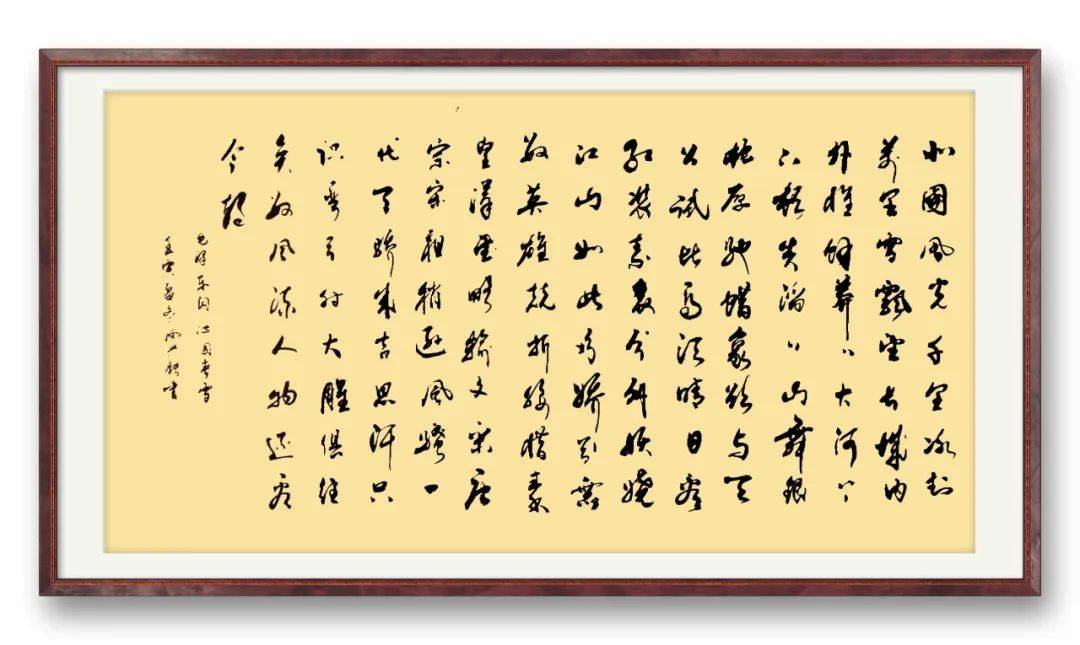 北國風光千里冰封
萬里雪飄望長城內
外惟餘莽莽大河上
下頓失滔滔山舞銀
蛇原馳蠟象欲與天
公試比高須晴日看
紅裝素裹分外妖嬈
江山如此多嬌引無
數英雄競折腰惜秦
皇漢武略輸文采唐
宗宋祖稍遜風騷一
代天驕成吉思汗只
識彎弓射大雕俱往
矣數風流人物還看
今朝
毛澤東詞沁園春雪